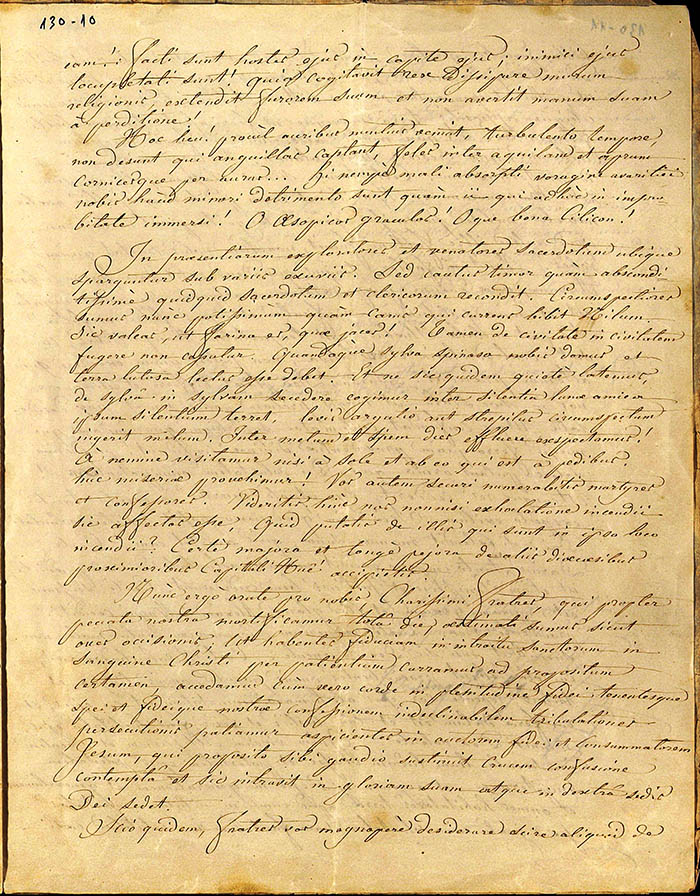 130-10
eam! : facti sunt hostes ejus in capite ejus; inimici ejus
locupletati sunt! quia cogitavit Rex dissipare murum
religionis, extendit furorem suum et non avertit manum suam
à perditione!
Hoc heu! procùl auribus nuntius veniat, turbulento tempore,
non desunt qui anguillas captant, feles inter aquilam et aprum
Cornicesque per auras... Hi nempè mali absorpti voragine avaritiæ
nobis haùd minori detrimento sunt quàm ii qui adhùc in impro
bitate immersi! O Æsopicos graculos! O que bona Cilicon!
In præsentiarum exploratores et venatores Sacerdotum ubique
sparguntur sub variis exuviis. Sed cautus timor quam abscondi
tissime quidquid Sacerdotum et clericorum recondit. Circumspectiores
sumus nunc potissimum quàm Canis qui currens bibit Nilum.
Sic valeas, ut farina es, quæ jaces! Tamen de civitate in civitatem
fugere non
Quandoque sylva spinosa nobis domus et
terra lutosa lectus esse debet. Et ne sic quidem quiete latemus,
de sylvâ in sylvam secedere cogimur inter silentia lunæ amica
ipsum silentium terret, levis
aut strepitus circumspectum
ingerit metum. Inter metum et spem dies effluere exspectamus!
A nemine visitamur nisi à sole et ab eo qui est à pedibus.
huc miseriæ provehimur! Vos autem securi numerabitis martyres
et confessores. Videritis hinc nos nonnisi exhalatione incendii
sic affectos esse; Quid putatis de illis qui sunt in ipso loco
incendii? Certè majora et longè pejora de aliis diœcesibus
proximioribus Capitali Huê accipietis.
Nunc ergo orate pro nobis Charissimi fratres, qui propter
peccata nostra mortificamur totâ die, æstimati sumus sicut
oves occisionis, Ut habentes fiduciam in introitu Sanctorum in
Sanguine Christi per patientiam curramus ad propositum
certamen, accedamus cùm vero corde in plenitudine fidei tenentesque
spei et fideique nostræ confessionem indeclinabilem tribulationes
persecutionis patiamur aspicientes in auctorem fidei et Consummatorem
Jesum, qui proposito sibi gaudio sustinuit Crucem confusione
contemptâ et sic intravit in gloriam suam atque in dextrâ sedis
Dei sedet.
Scio quidem, fratres vos magnoperè desiderare scire aliquid de